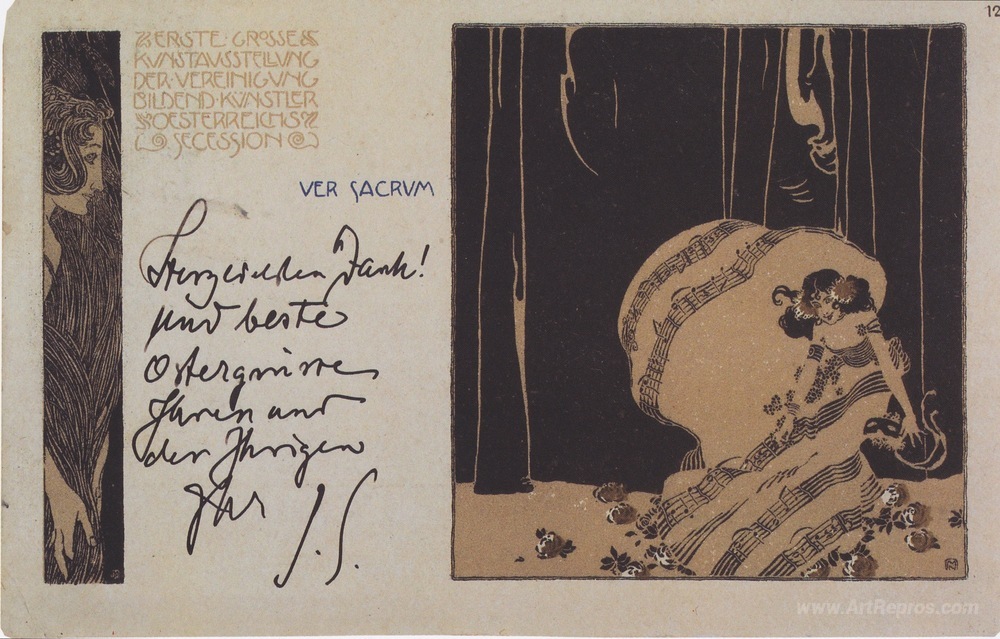 12
ERSTE·GROSSE
KUNSTAUSSTELLUNG
DER·VEREINIGUNG
BILDEND·KÜNSTLER
OESTERREICHS
SECESSION
VER SACRVM
Herzlichsten Dank!
und beste
Ostergrüsse
Ihnen und
den Ihrigen
Ihr J. S.
www.ArtRepros.com